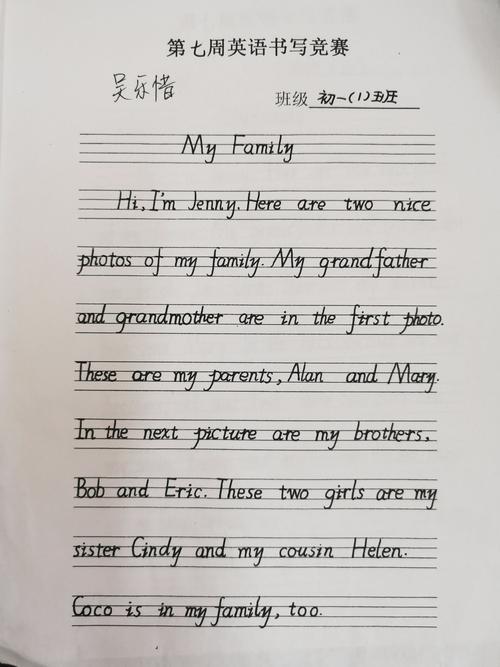 第七周英语书写竞赛
吴乐惜
班级 初一(1)班
My Family
Hi, I'm Jenny. Here are two nice
photos of my family. My grandfather
and grandmother are in the first photo.
These are my parents, Alan and Mary.
In the next picture are my brothers,
Bob and Eric. These two girls are my
sister Cindy and my cousin Helen.
Coco is in my family, too.